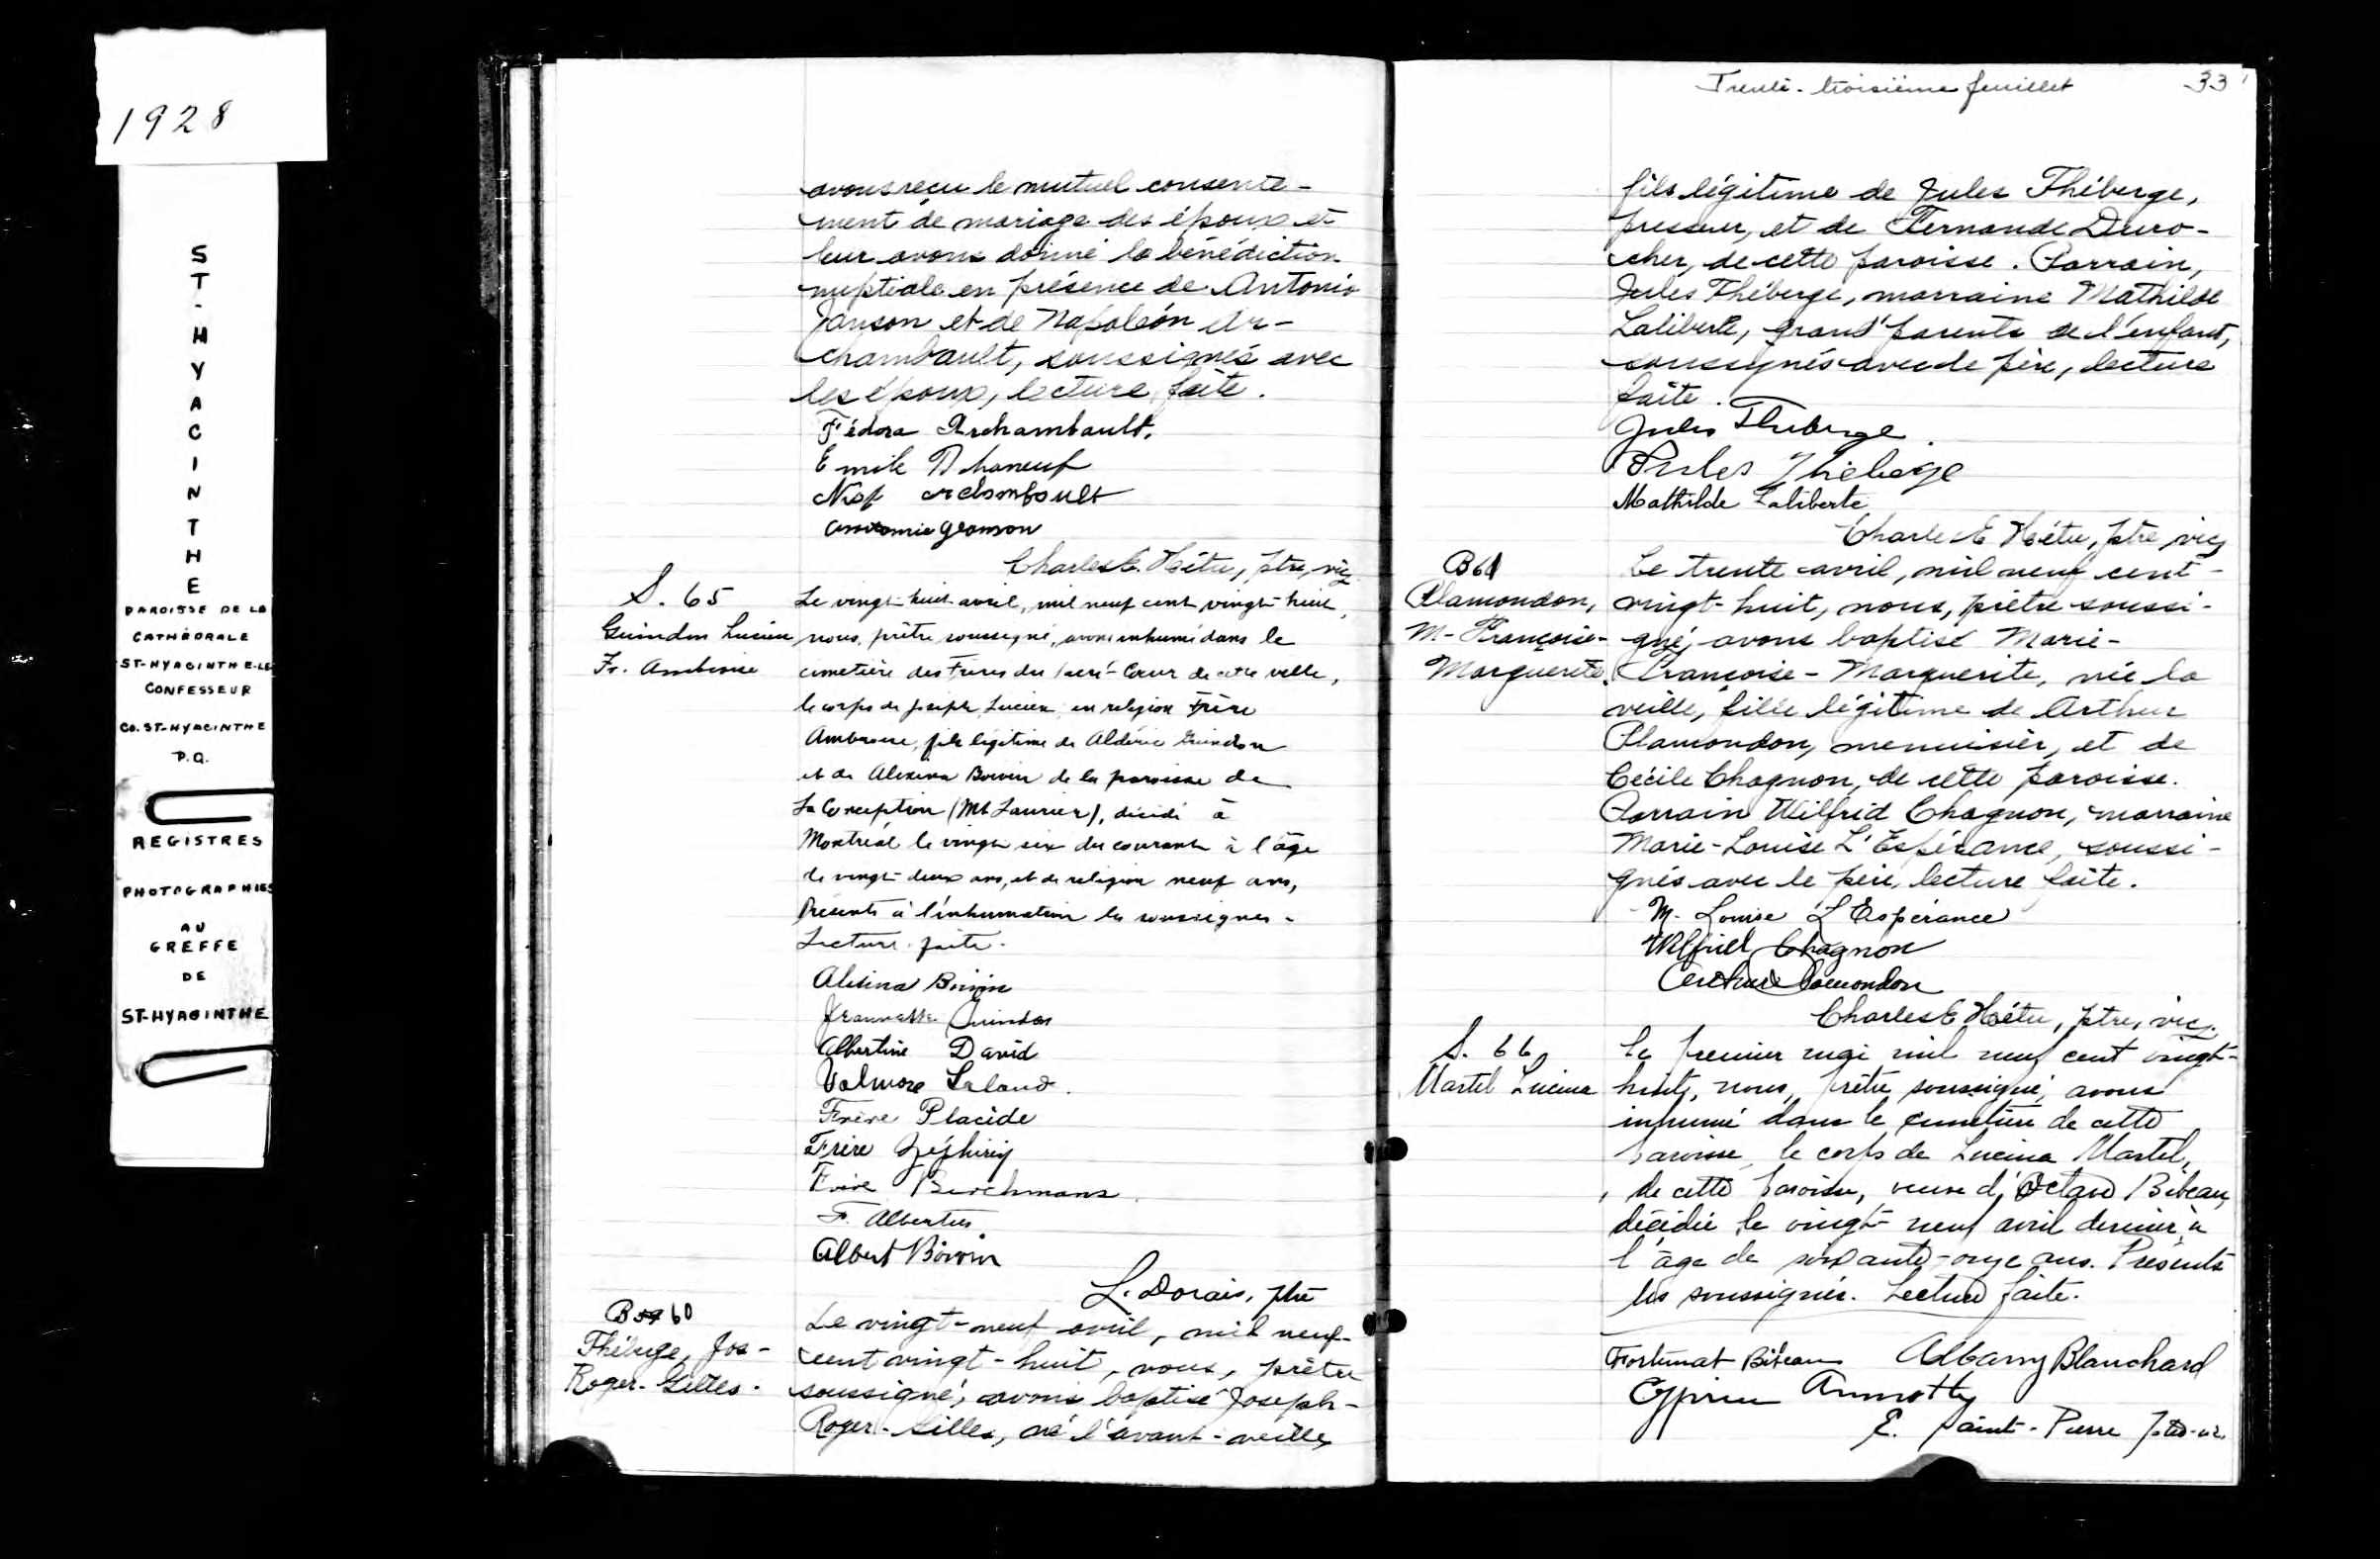 1928
ST-HYACINTHE
PAROISSE DE LA
CATHÉDRALE
ST-HYACINTHE-LE
CONFESSEUR
CO. ST-HYACINTHE
P.Q.
REGISTRES
PHOTOGRAPHIES
AU
GREFFE
DE
ST-HYACINTHE
avons reçu le mutuel consente-
ment de mariage des époux et
leur avons donné la bénédiction
nuptiale en présence de Antonio
Janson et de Napoléon Ar-
chambault, soussignés avec
les époux, lecture faite.
Fédora Archambault.
Emile Phaneuf
Nap archambault
Charles E. Hétu, ptre, vic.
S. 65
Guindon Lucien
Fr. Ambroise
Le vingt-huit avril, mil neuf cent vingt-huit,
nous, prêtre soussigné, avons inhumé dans le
cimetière des Frères du Sacré-Coeur de cette ville,
le corps de Joseph Lucien en religion Frère
Ambroise, fils légitime de Aldéric Guindon
et de Alexina Boivin de la paroisse de
La Conception (Mt Laurier), décédé à
Montréal le vingt six du courant à l'âge
de vingt-deux ans, et de religion neuf ans,
Présents à l'inhumation les soussignés -
Lecture faite.
Alexina Boivin
Jeannette Guindon
Albertine David
Valmore Lalande.
Frère Placide
Frère Zéphirin
Frère Berchmans
F. Albertus
Albert Boivin
L. Dorais, ptre
B 59 60
Théberge, Jos-
Roger-Gilles.
Le vingt-neuf avril, mil neuf-
cent vingt-huit, nous, prêtre
soussigné, avons baptisé Joseph-
Roger-Gilles, né l'avant-veille,
Trente-troisième feuillet 33
fils légitime de Jules Théberge,
presseur, et de Fernande Duro-
cher, de cette paroisse. Parrain,
Jules Théberge, marraine Mathilde
Laliberté, grand'parents de l'enfant,
soussignés avec le père, lecture
faite.
Jules Theberge.
Jules Théberge
Mathilde Laliberte
Charles E Hétu, ptre, vic
B 61
Plamondon,
M-Françoise-
Marguerite.
Le trente avril, mil neuf cent-
vingt-huit, nous, prêtre soussi-
gné, avons baptisé Marie-
Françoise-Marguerite, née la
veille, fille légitime de Arthur
Plamondon, menuisier, et de
Cécile Chagnon, de cette paroisse.
Parrain Wilfrid Chagnon, marraine
Marie-Louise L'Espérance, soussi-
gnés avec le père, lecture faite.
M. Louise L'Espérance
Wilfrid Chagnon
Arthur Plamondon
Charles E Hétu, ptre, vic.
S. 66
Martel Lucina
Le premier mai mil neuf cent vingt-
huit, nous, prêtre soussigné, avons
inhumé dans le cimetière de cette
paroisse, le corps de Lucina Martel,
de cette paroisse, veuve d'Octave Bibeau,
décédée le vingt-neuf avril dernier, à
l'âge de soixante-onze ans. Présents
les soussignés. Lecture faite.
Fortunat Bibeau Albany Blanchard
Cyprien
E. Saint-Pierre